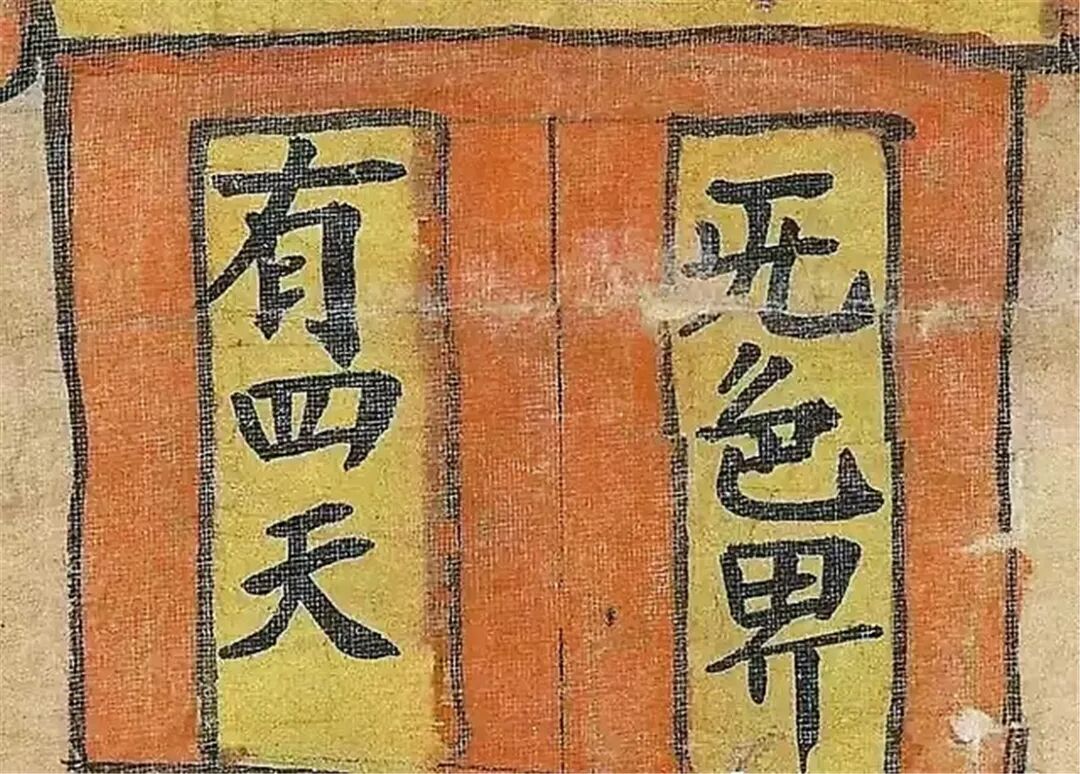 无色界
有四天